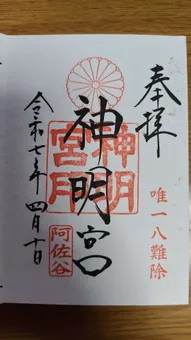 奉拝
唯一八難除
神明宮
神明宮
阿佐谷
令和七年四月十日